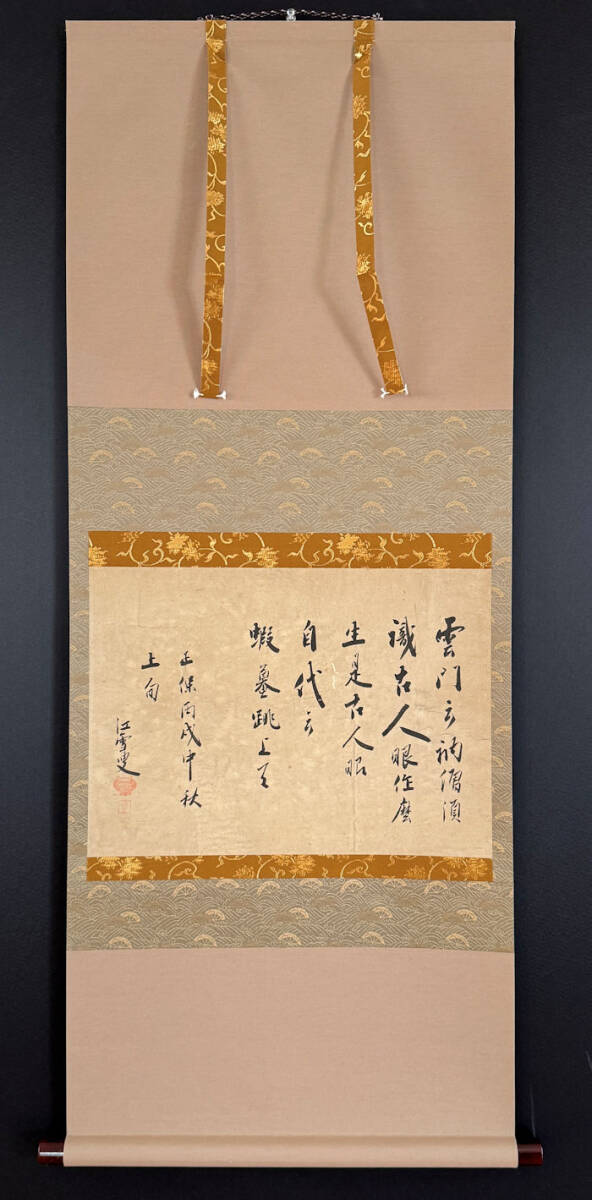 雲門云衲僧須
識古人眼作麼
生是古人眼
自代云
蝦蟇跳上天
正保丙戌中秋
上旬
江雪叟